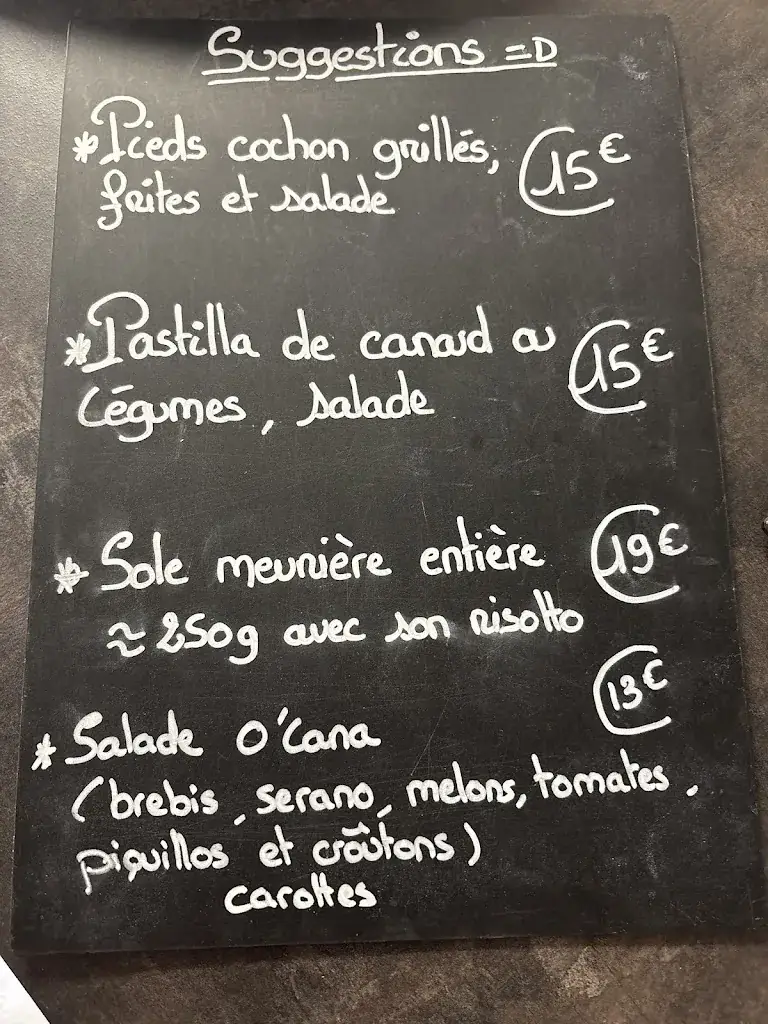 Suggestions =D
* Pieds cochon grillés, 15€
frites et salade
* Pastilla de canard ou 15€
Légumes, salade
* Sole meunière entière 19€
≈ 250g avec son risotto
13€
* Salade O'Cana
(brebis, serano, melons, tomates,
piquillos et croûtons)
carottes